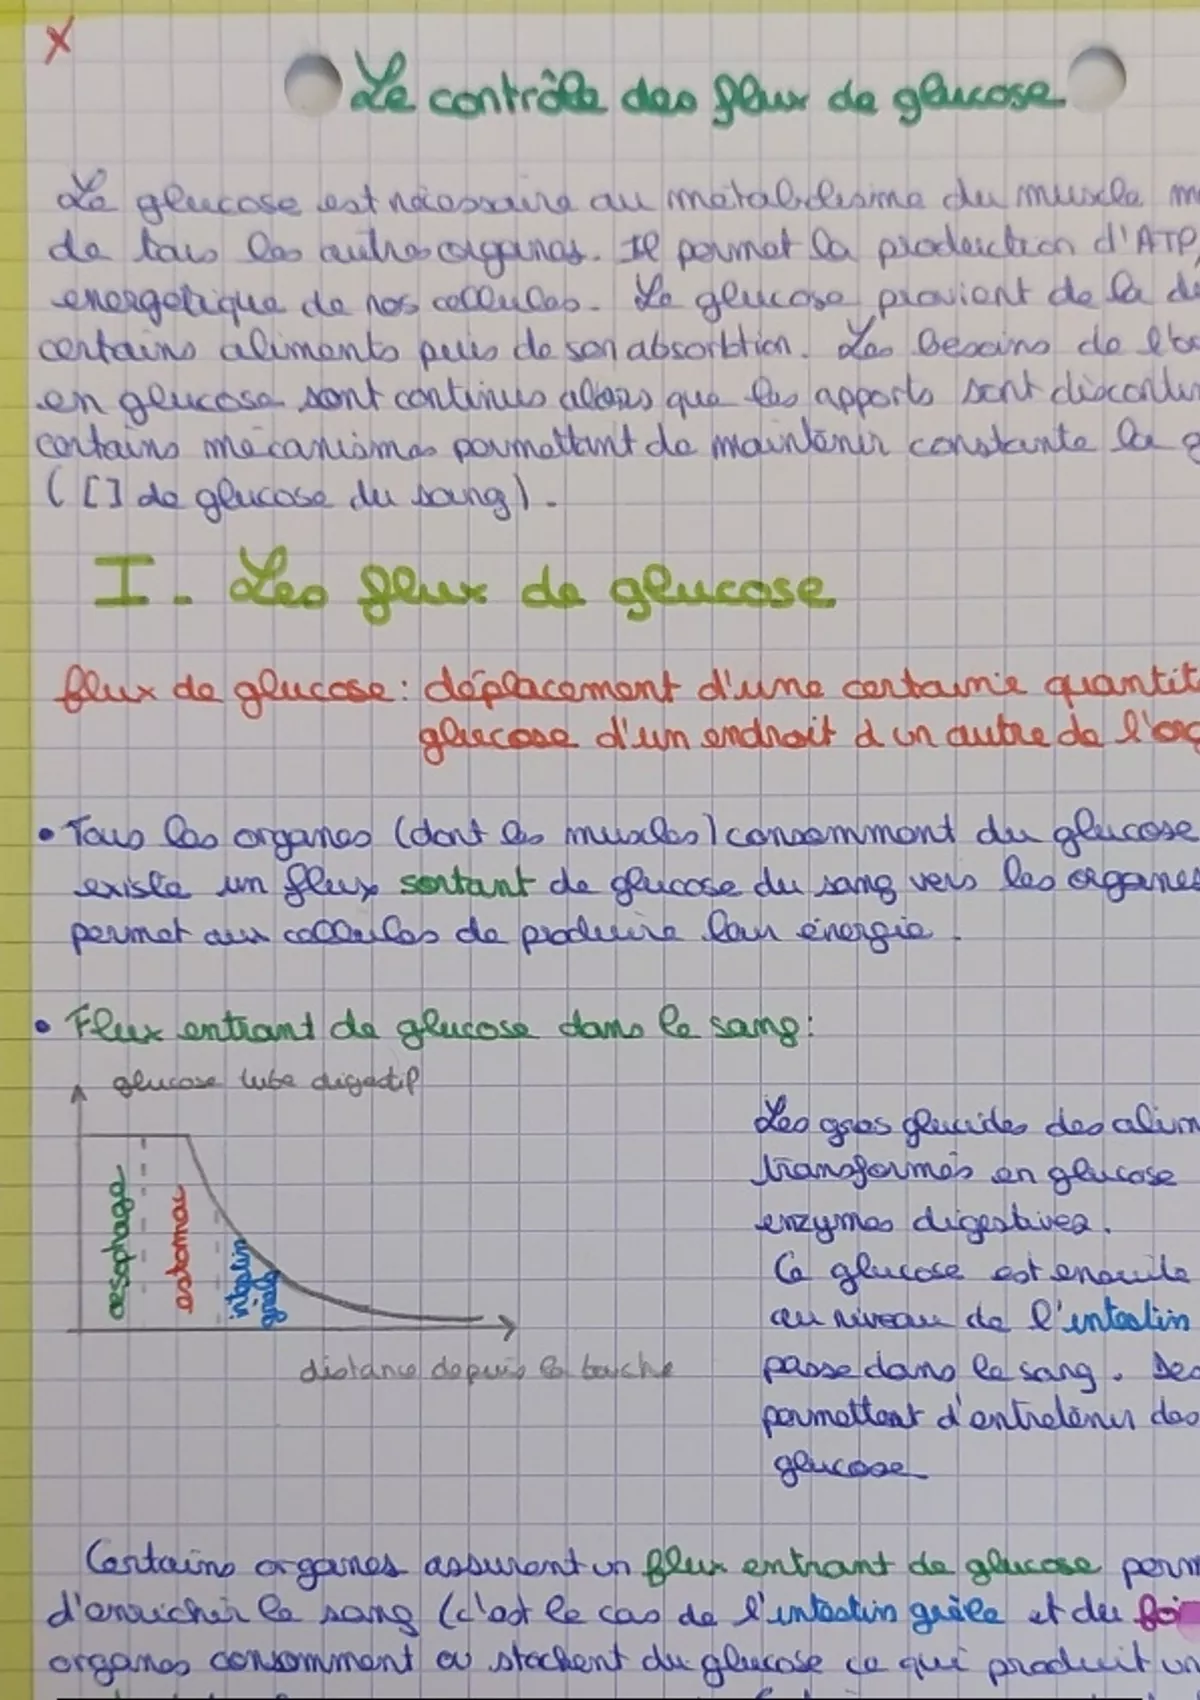 Le contrôle des flux de glucose
Le glucose est nécessaire au métabolisme du muscle
de tous les autres organes. Il permet la production d'ATP,
energetique de nos cellules. Le glucose provient de la
certains aliments puis de son absorbtion. Les besoins de
en glucose sont continus alors que les apports sont
certains mécanismes permettant de maintenir constante la
([] de glucose du sang).
I. Les flux de glucose
flux de glucose: déplacement d'une certaine
glucose d'un endroit à un autre de
• Tous les organes (dont les muscles) consomment du glucose
existe un flux sortant de glucose du sang vers les organes
permet aux cellules de produire leur énergie.
• Flux entrant de glucose dans le sang:
glucose tube digestif
oesophage
estomac
intestin
grele
distance depuis la bouche
Les gros glucides des
transformés en glucose
enzymes digestives.
Ce glucose est ensuite
au niveau de l'intestin
passe dans le sang.
permettent d'entretenir des
glucose
Certains organes assurent un flux entrant de glucose
d'enrichir le sang (c'est le cas de l'intestin grêle et du
organes consomment ou stockent du glucose ce qui produit un